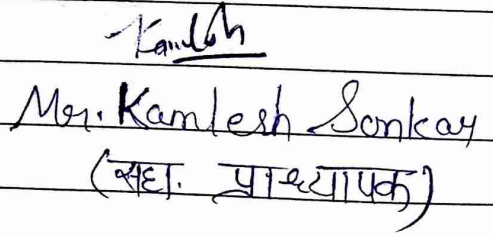 Kamlesh
Mr. Kamlesh Sonkar
(सहा. प्राध्यापक)